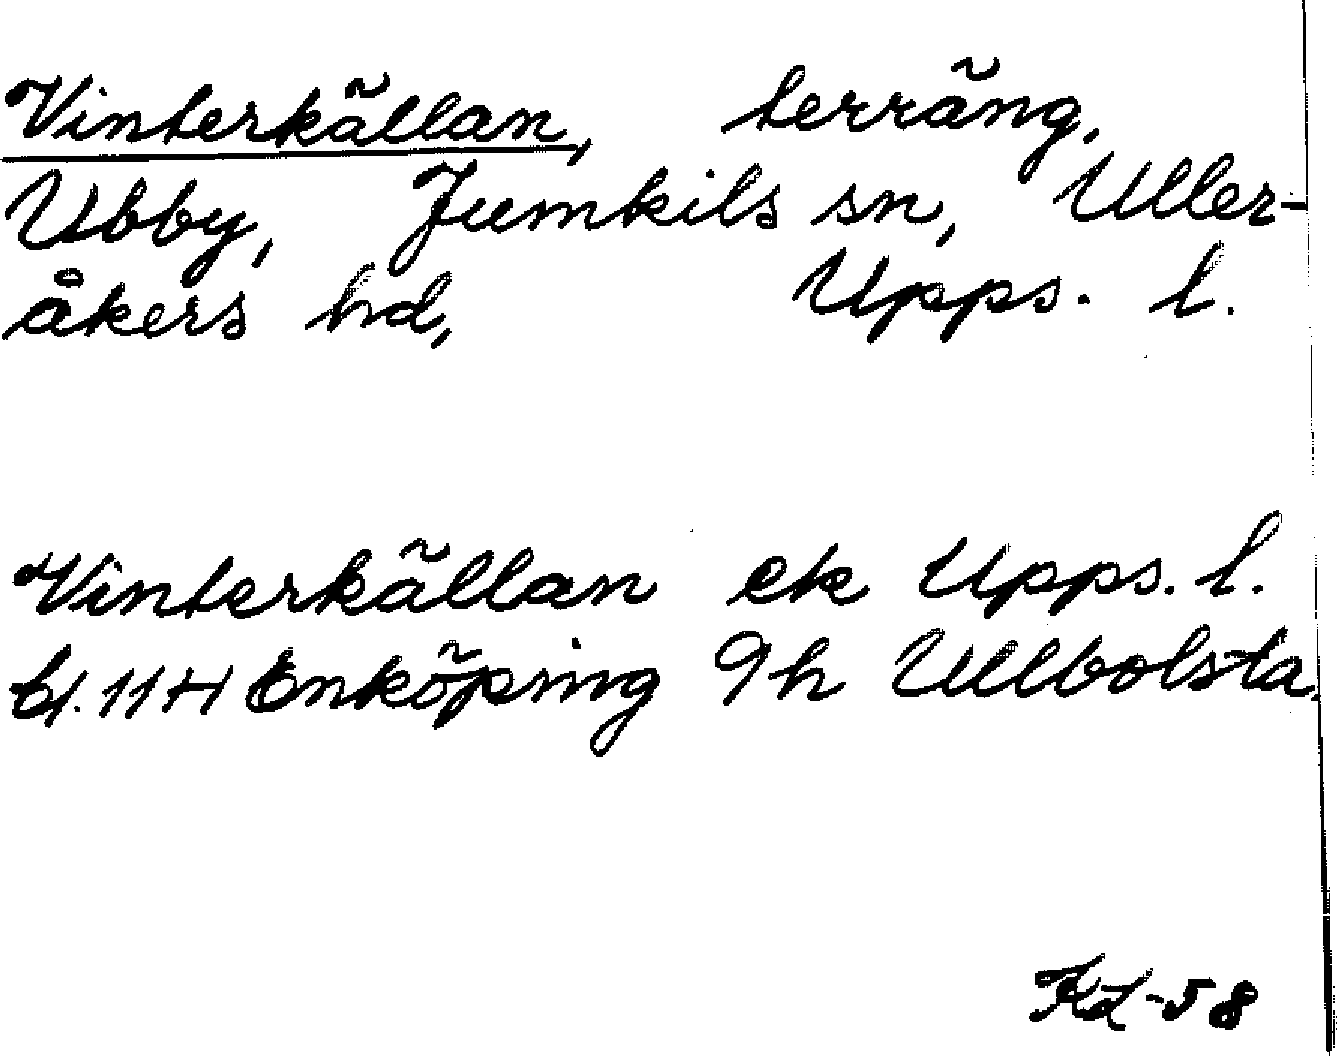 Vinterkällan, terräng.
Ubby, Jumkils sn, Uller-
åkers hd, Upps. l.
Vinterkällan ek Upps. l.
bl. 11H Enköping 9h Ullbolsta.
KL-58